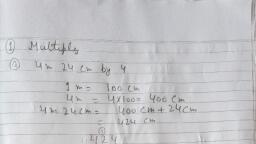 ① Multiply
② 4m 24 cm by 4
1m = 100 cm
4m = 4×100 = 400 cm
4m 24cm = 400 cm + 24cm
= 424 cm
424